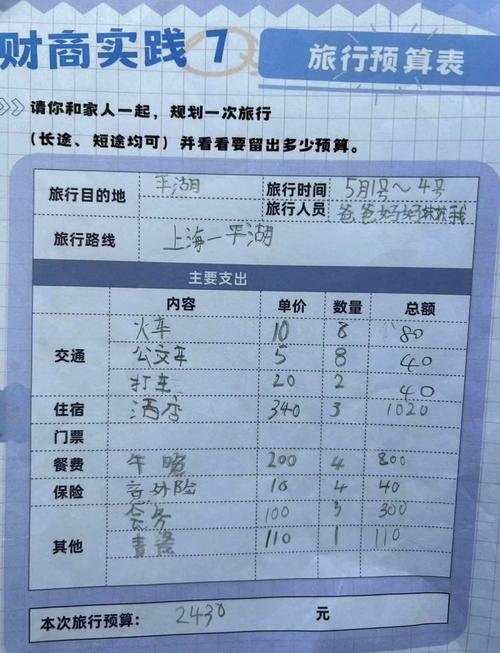 财商实践 7 旅行预算表
请你和家人一起，规划一次旅行
（长途、短途均可）并看看要留出多少预算。
旅行目的地 平湖 旅行时间 5月1号～4号
旅行人员 爸爸妈妈妹妹我
旅行路线 上海—平湖
主要支出
内容 单价 数量 总额
交通 火车 10 8 80
公交车 5 8 40
打车 20 2 40
住宿 酒店 340 3 1020
门票
餐费 午 晚 200 4 800
保险 意外险 10 4 40
100 3 300
其他 110 1 110
本次旅行预算： 2430 元